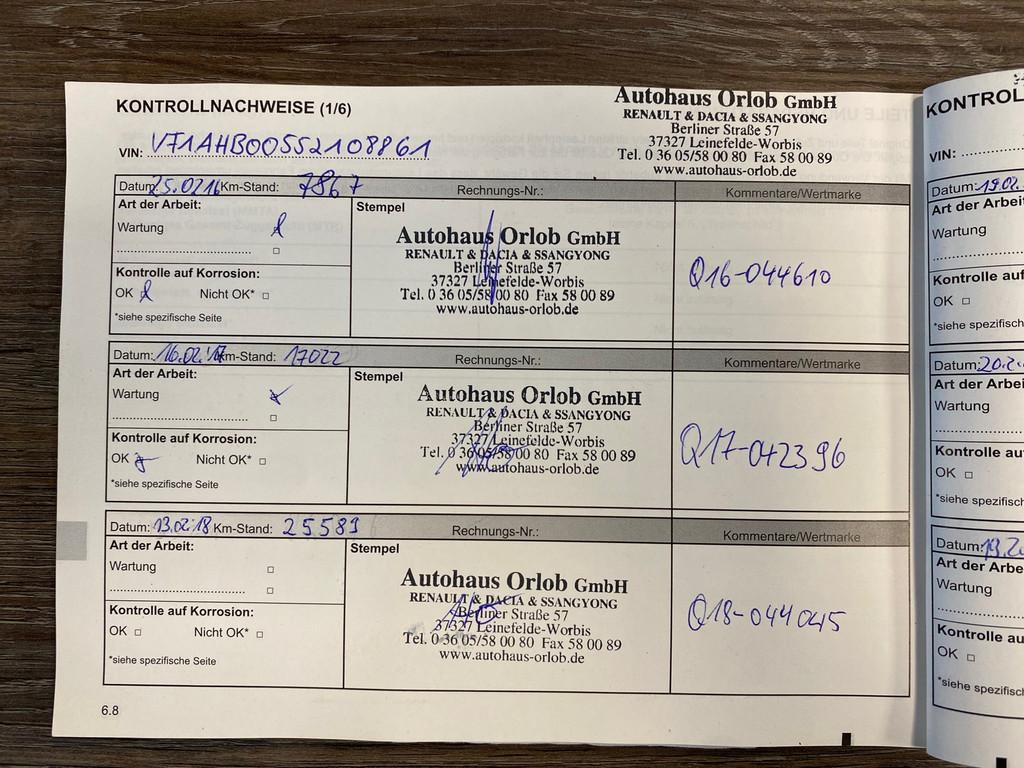 KONTROLLNACHWEISE (1/6)
Autohaus Orlob GmbH
RENAULT & DACIA & SSANGYONG
Berliner Straße 57
37327 Leinefelde-Worbis
Tel. 0 36 05/58 00 80 Fax 58 00 89
www.autohaus-orlob.de
VIN: VF1AHB00552108861
Datum: 25.02.16 Km-Stand: 7867 Rechnungs-Nr.: Kommentare/Wertmarke
Art der Arbeit:
Wartung
Kontrolle auf Korrosion:
OK Nicht OK*
*siehe spezifische Seite
Stempel
Autohaus Orlob GmbH
RENAULT & DACIA & SSANGYONG
Berliner Straße 57
37327 Leinefelde-Worbis
Tel. 0 36 05/58 00 80 Fax 58 00 89
www.autohaus-orlob.de
Q16-044610
Datum: 16.02.17 Km-Stand: 17022 Rechnungs-Nr.: Kommentare/Wertmarke
Art der Arbeit:
Wartung
Kontrolle auf Korrosion:
OK Nicht OK*
*siehe spezifische Seite
Stempel
Autohaus Orlob GmbH
RENAULT & DACIA & SSANGYONG
Berliner Straße 57
37327 Leinefelde-Worbis
Tel. 0 36 05/58 00 80 Fax 58 00 89
www.autohaus-orlob.de
Q17-042396
Datum: 13.02.18 Km-Stand: 25589 Rechnungs-Nr.: Kommentare/Wertmarke
Art der Arbeit:
Wartung
Kontrolle auf Korrosion:
OK Nicht OK*
*siehe spezifische Seite
Stempel
Autohaus Orlob GmbH
RENAULT & DACIA & SSANGYONG
Berliner Straße 57
37327 Leinefelde-Worbis
Tel. 0 36 05/58 00 80 Fax 58 00 89
www.autohaus-orlob.de
Q18-044045
6.8
KONTROL
VIN:
Datum: 19.02.
Art der Arbei
Wartung
Kontrolle auf
OK
*siehe spezifisch
Datum: 20.2
Art der Arbei
Wartung
Kontrolle au
OK
*siehe spezifisch
Datum:
Art der Arbe
Wartung
Kontrolle au
OK
*siehe spezifisc